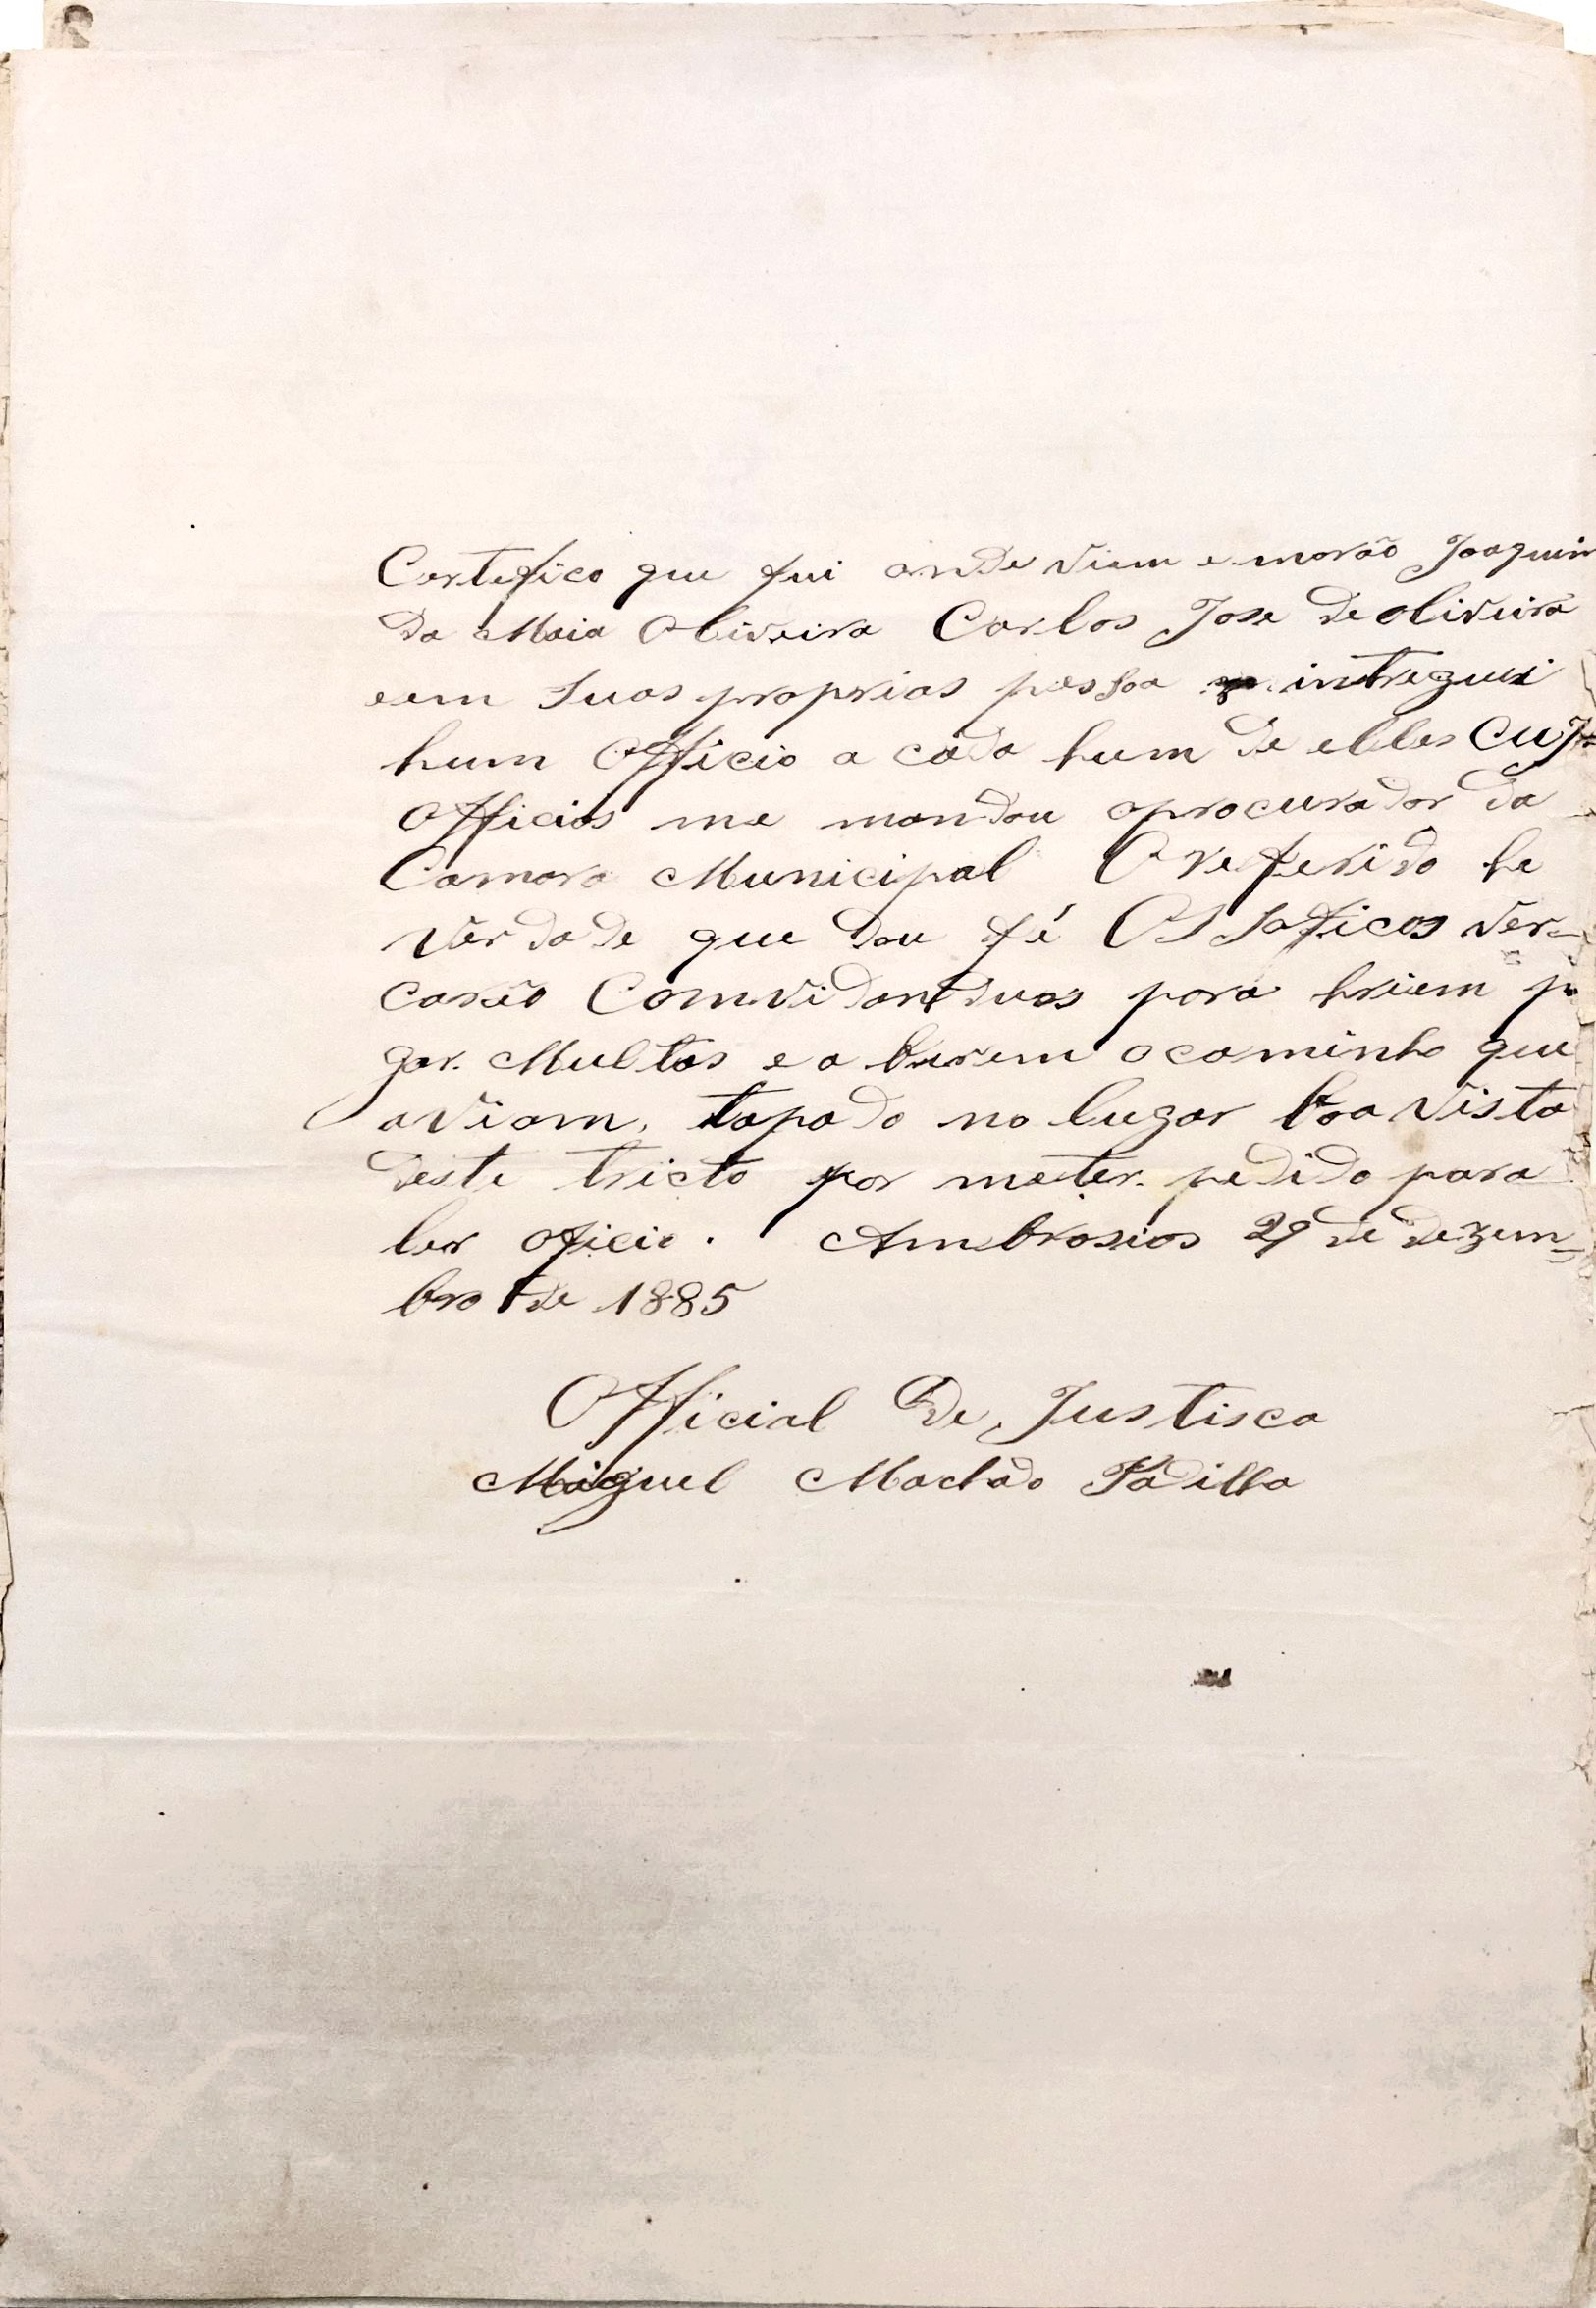 Certefico que fui onde vivem e morão Joaquim
da Maia Oliveira Carlos Jose de oliveira
eem Suas proprias pessoa intreguei
hum Officio a cada hum de elles cuj
Officios me mandou oprocurador da
Camara Municipal O referido he
verdade que dou fé Os ver-
carão Comvidanduos para hirem p
gar. Multas e a burem o caminho que
aviam, tapado no lugar boa Vista
deste tricto por meter. pedido para
ler oficio. Ambrosios 29 de dezem=
bro de 1885
Official De Justisca
Miguel Machado Padilha